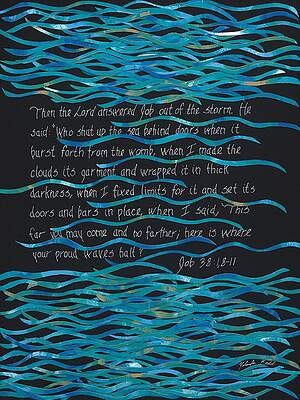 Then the Lord answered Job out of the storm. He
said: "Who shut up the sea behind doors when it
burst forth from the womb, when I made the
clouds its garment and wrapped it in thick
darkness, when I fixed limits for it and set its
doors and bars in place, when I said, "This
far you may come and no farther; here is where
your proud waves halt?
Job 38:1,8-11